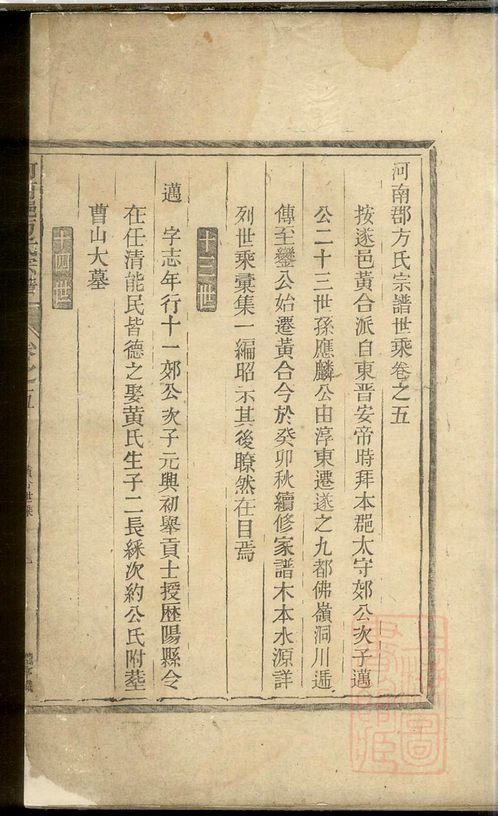 河南郡方氏宗譜世乘卷之五
按遂邑黃合派自東晉安帝時拜本郡太守郊公次子邁
公二十三世孫應麟公由淳東遷遂之九都佛嶺洞川遞
傳至鑾公始遷黃合今於癸卯秋續修家譜木本水源詳
列世乘彙集一編昭示其後瞭然在目焉
十三世
邁 字志年行十一郊公次子元興初舉貢士授歷陽縣令
在任清能民皆德之娶黃氏生子二長綵次約公氏附塟
曹山大墓
十四世
卷之五